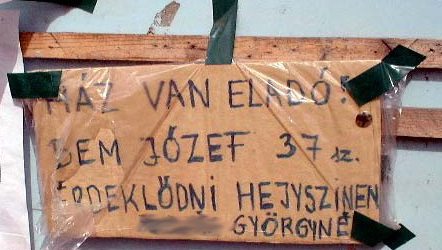 HÁZ VAN ELADÓ!
BEM JÓZEF 37 sz.
ÉRDEKLŐDNI HEJYSZINEN
GYÖRGYNÉ